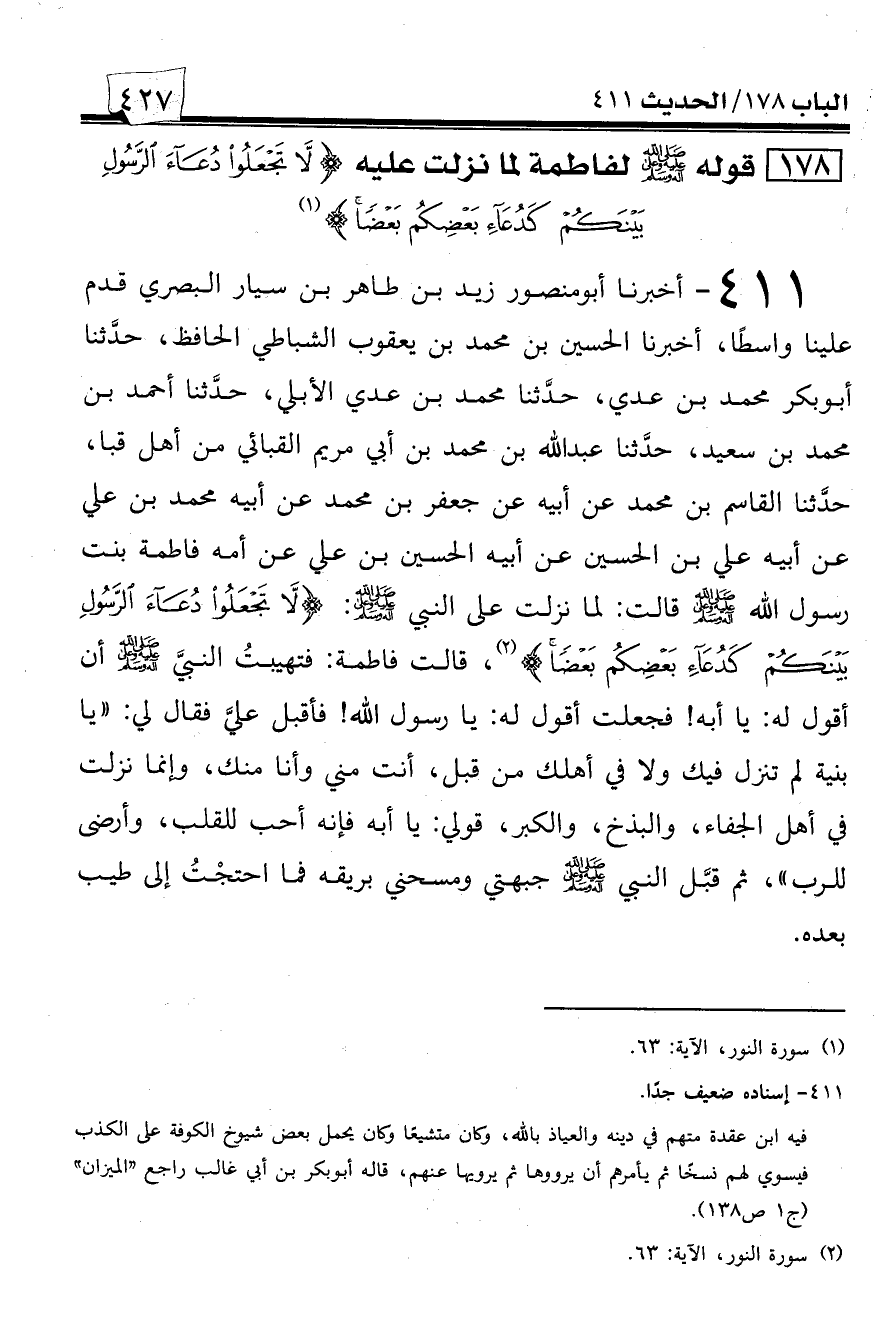 الباب ١٧٨/ الحديث ٤١١
٤٢٧
١٧٨ قوله ﷺ لفاطمة لما نزلت عليه ﴿لَّا تَجْعَلُوا۟ دُعَآءَ ٱلرَّسُولِ
بَيْنَكُمْ كَدُعَآءِ بَعْضِكُم بَعْضًا ۚ﴾ (١)
٤١١ - أخبرنا أبومنصور زيد بن طاهر بن سيار البصري قدم
علينا واسطًا، أخبرنا الحسين بن محمد بن يعقوب الشباطي الحافظ، حدَّثنا
أبوبكر محمد بن عدي، حدَّثنا محمد بن عدي الأبلي، حدَّثنا أحمد بن
محمد بن سعيد، حدَّثنا عبدالله بن محمد بن أبي مريم القبائي من أهل قبا،
حدَّثنا القاسم بن محمد عن أبيه عن جعفر بن محمد عن أبيه محمد بن علي
عن أبيه علي بن الحسين عن أبيه الحسين بن علي عن أمه فاطمة بنت
رسول الله ﷺ قالت: لما نزلت على النبي ﷺ: ﴿لَّا تَجْعَلُوا۟ دُعَآءَ ٱلرَّسُولِ
بَيْنَكُمْ كَدُعَآءِ بَعْضِكُم بَعْضًا ۚ﴾ (٢)، قالت فاطمة: فتهيبتُ النبيَّ ﷺ أن
أقول له: يا أبه! فجعلت أقول له: يا رسول الله! فأقبل عليَّ فقال لي: «يا
بنية لم تنزل فيك ولا في أهلك من قبل، أنت مني وأنا منك، وإنما نزلت
في أهل الجفاء، والبذخ، والكبر، قولي: يا أبه فإنه أحب للقلب، وأرضى
للرب»، ثم قبَّل النبي ﷺ جبهتي ومسحني بريقه فما احتجْتُ إلى طيب
بعده.
(١) سورة النور، الآية: ٦٣.
٤١١- إسناده ضعيف جدًا.
فيه ابن عقدة متهم في دينه والعياذ بالله، وكان متشيعًا وكان يحمل بعض شيوخ الكوفة على الكذب
فيسوي لهم نسخًا ثم يأمرهم أن يرووها ثم يرويها عنهم، قاله أبوبكر بن أبي غالب راجع "الميزان"
(ج١ ص١٣٨).
(٢) سورة النور، الآية: ٦٣.